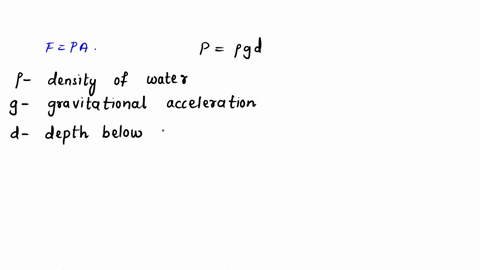 F = PA.
P = ρgd
ρ- density of water
g- gravitational acceleration
d- depth below